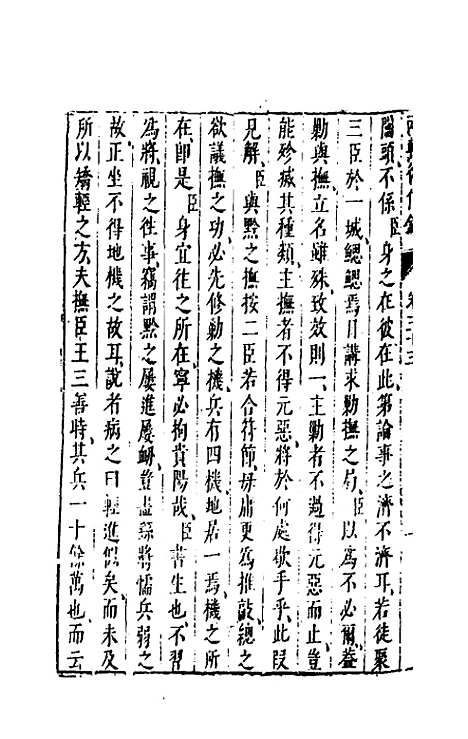 關頭不係臣身之在彼在此第論事之濟不濟耳若徒聚
三臣於一城鰓鰓焉日講求勦撫之局臣以為不必爾蓋
勦與撫立名雖殊致效則一主勦者不過得元惡而止豈
能殄滅其種類主撫者不得元惡將於何處歇手乎此段
見解臣與黔之撫按二臣若合符節毋庸更為推敲總之
欲議撫之功必先修勦之機兵有四機地居一焉機之所
在即是臣身宜往之所在寧必拘貴陽哉臣書生也不習
為將視之往事竊謂黔之屢進屢衄豈盡繇將懦兵弱之
故正坐不得地機之故耳說者病之曰輕進似矣而未及
所以矯輕之方夫撫臣王三善時其兵一十餘萬也而云